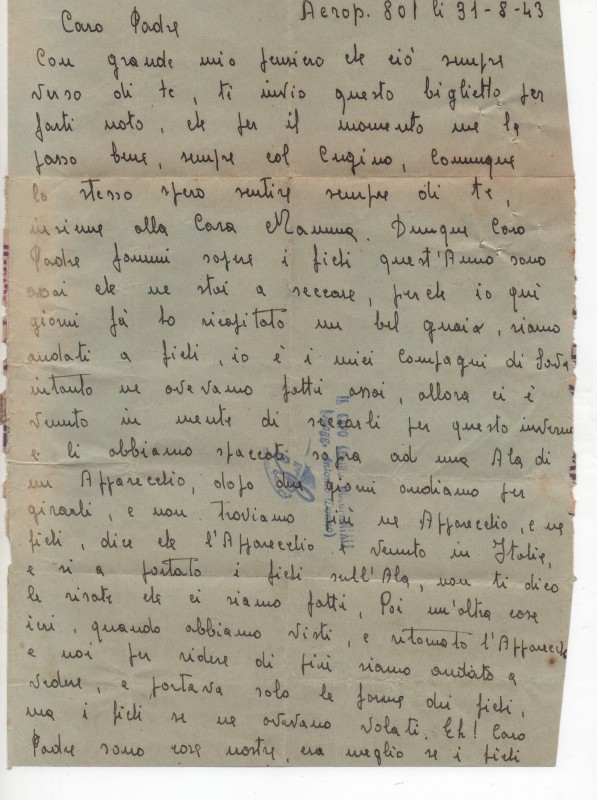 Aerop. 801 li 31-8-43
Caro Padre
Con grande mio pensiero che ciò sempre
verso di te, ti invio questo biglietto per
farti noto, che per il momento me la
passo bene, sempre col Cugino, Comunque
lo stesso spero sentire sempre di te,
insieme alla Cara Mamma. Dunque Caro
Padre fammi sapere i fichi quest'Anno sono
assai che ne stai a seccare, perche io quì
giorni fà ho ricapitato un bel guaio, siamo
andati a fichi, io è i miei Compagni di
intanto ne avevamo fatti assai, allora ci è
venuto in mente di seccarli per questo inverno
e li abbiamo spaccati sopra ad una Ala di
un Apparecchio, dopo due giorni andiamo per
girarli, e non troviamo più ne Apparecchio, e ne
fichi, dice che l'Apparecchio è venuto in Italia,
e si a portato i fichi sull'Ala, non ti dico
le risate che ci siamo fatti, Poi un'altra cosa
ieri, quando abbiamo visti, e ritornato l'Apparecchio
e noi per ridere di più siamo andato a
vedere, e portava solo le forme dei fichi,
ma i fichi se ne avevano volati. Eh! Caro
Padre sono cose nostre, era meglio se i fichi